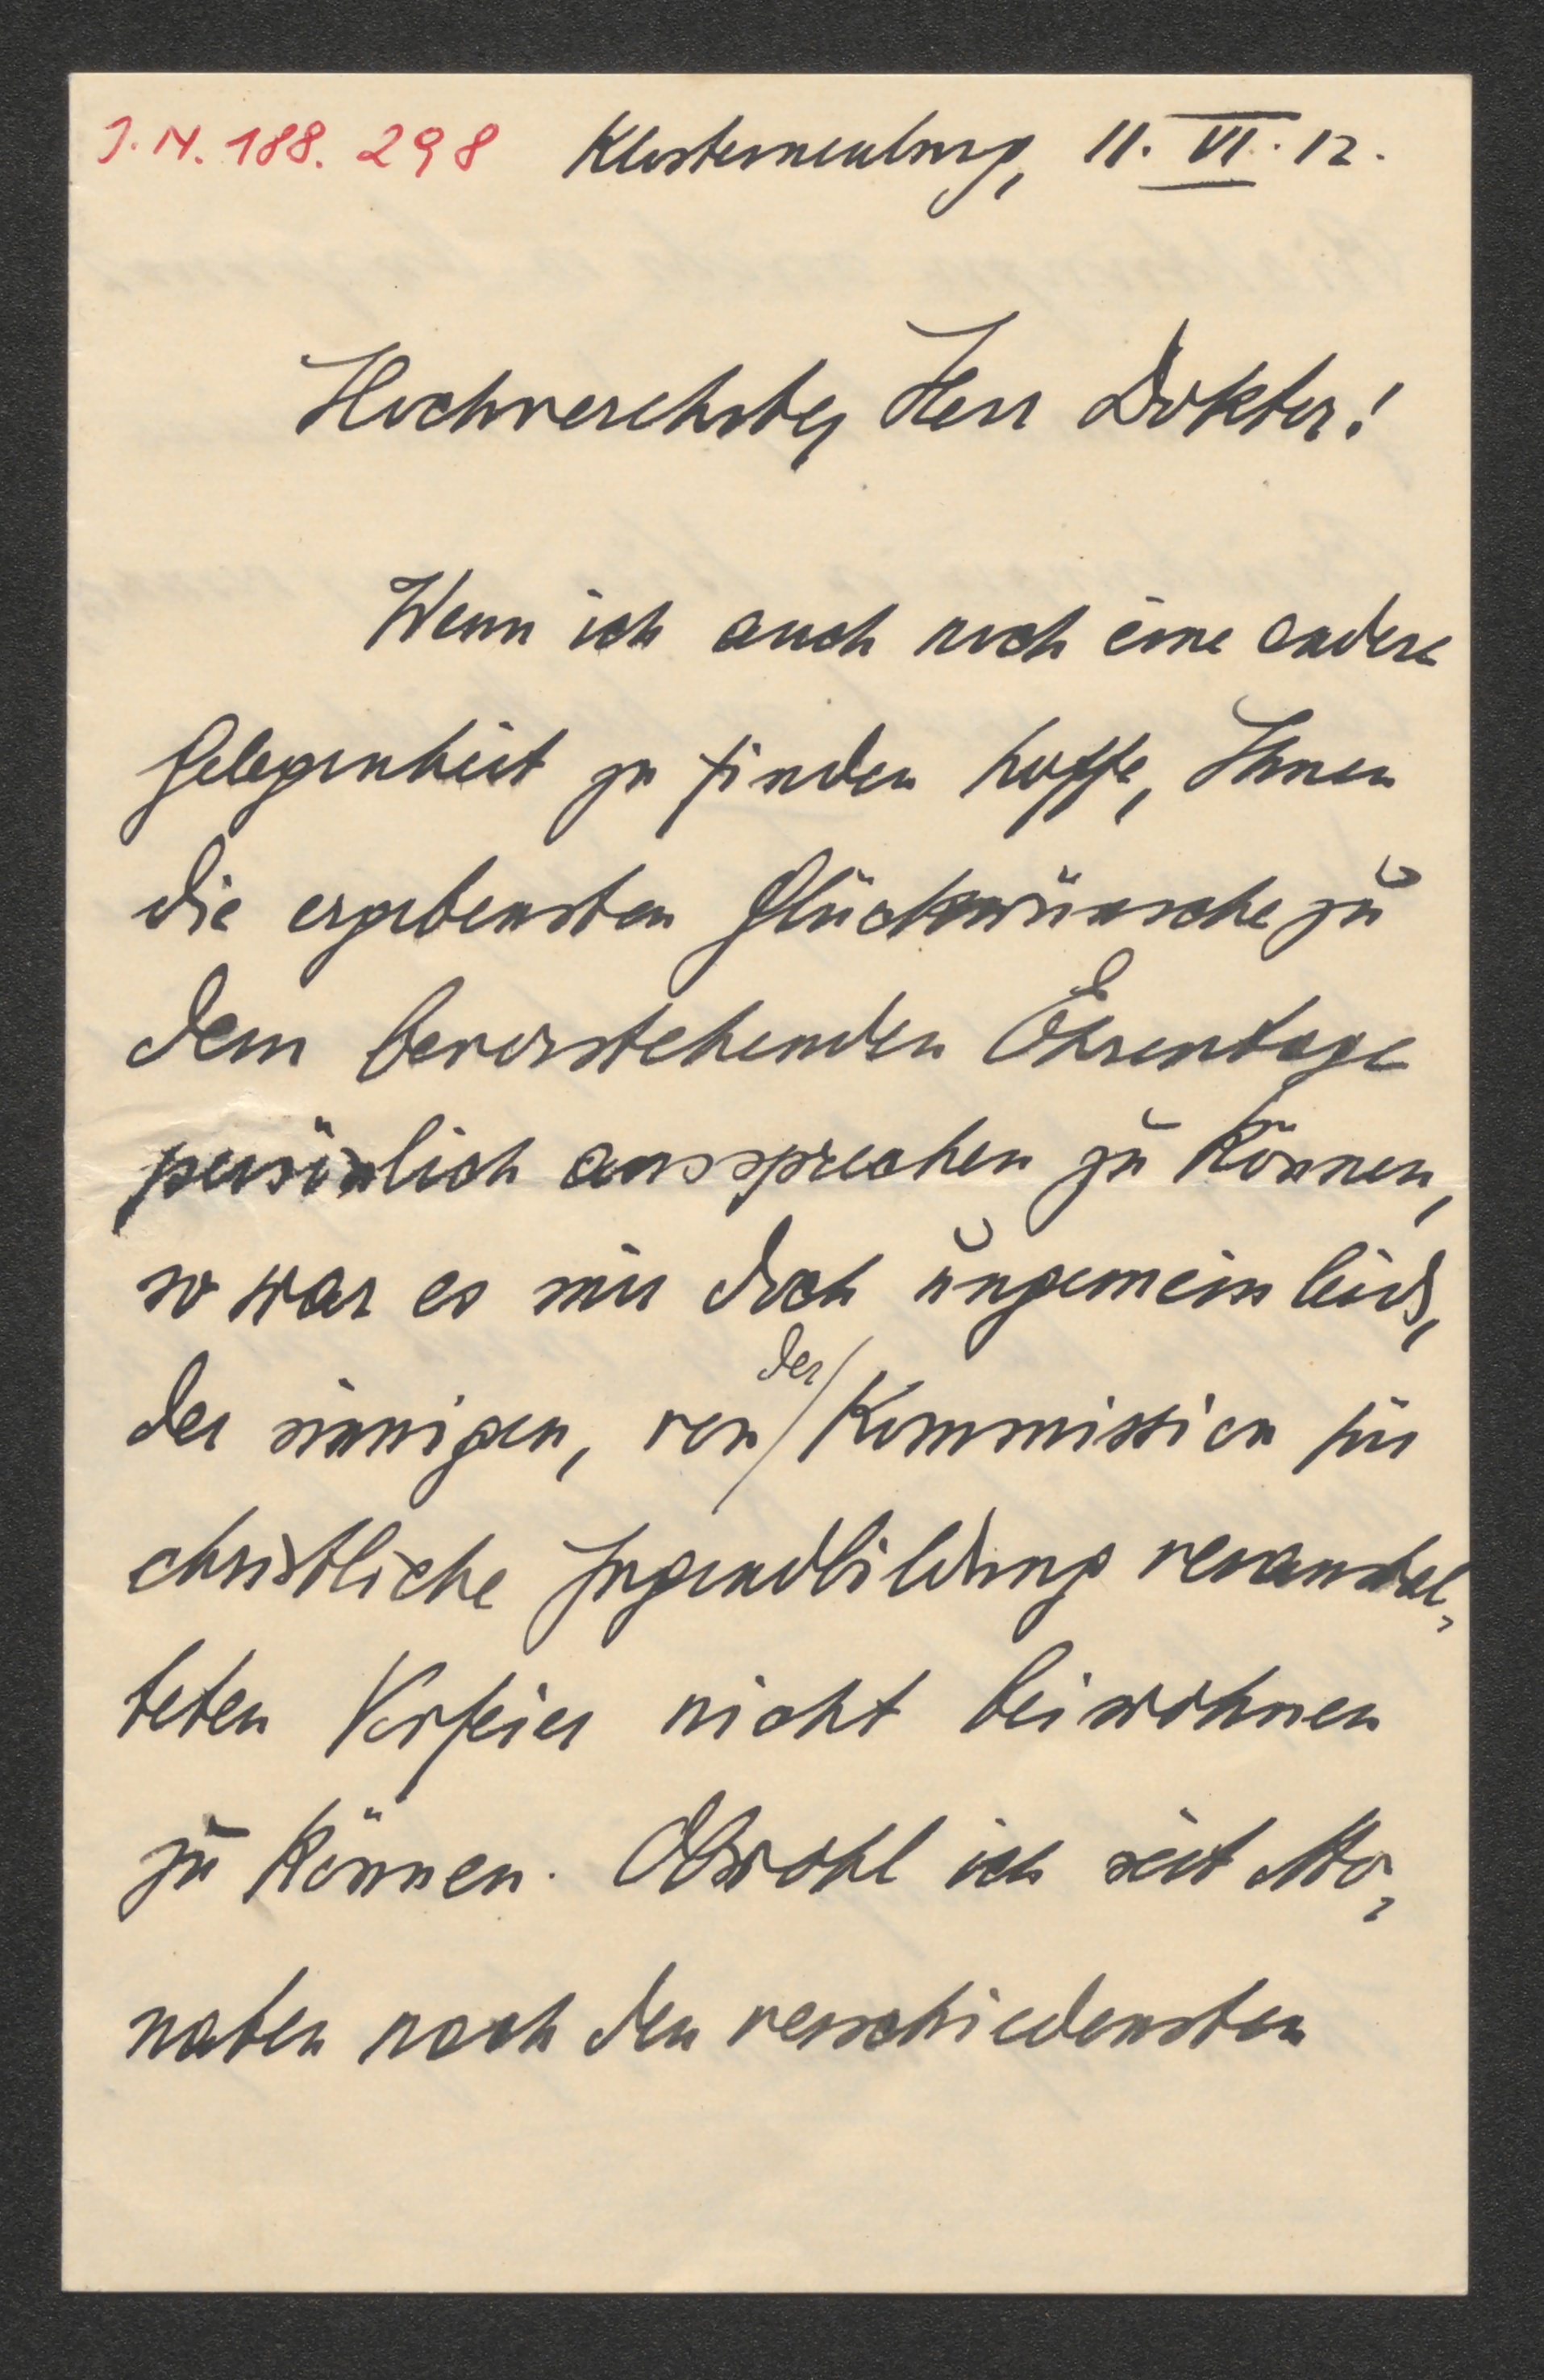 J.N. 188.298 Klosterneuburg, 11. VI. 12.
Hochverehrter Herr Doktor!
Wenn ich auch noch eine andere
Gelegenheit zu finden hoffe, Ihnen
die ergebensten Glückwünsche zu
dem bevorstehenden Ehrentage
persönlich aussprechen zu können,
so war es mir doch ungemein leid,
der sinnigen, von der Kommission für
christliche Jugendbildung veranstal-
teten Vorfeier nicht beiwohnen
zu können. Obwohl ich seit Mo-
naten nach den verschiedensten